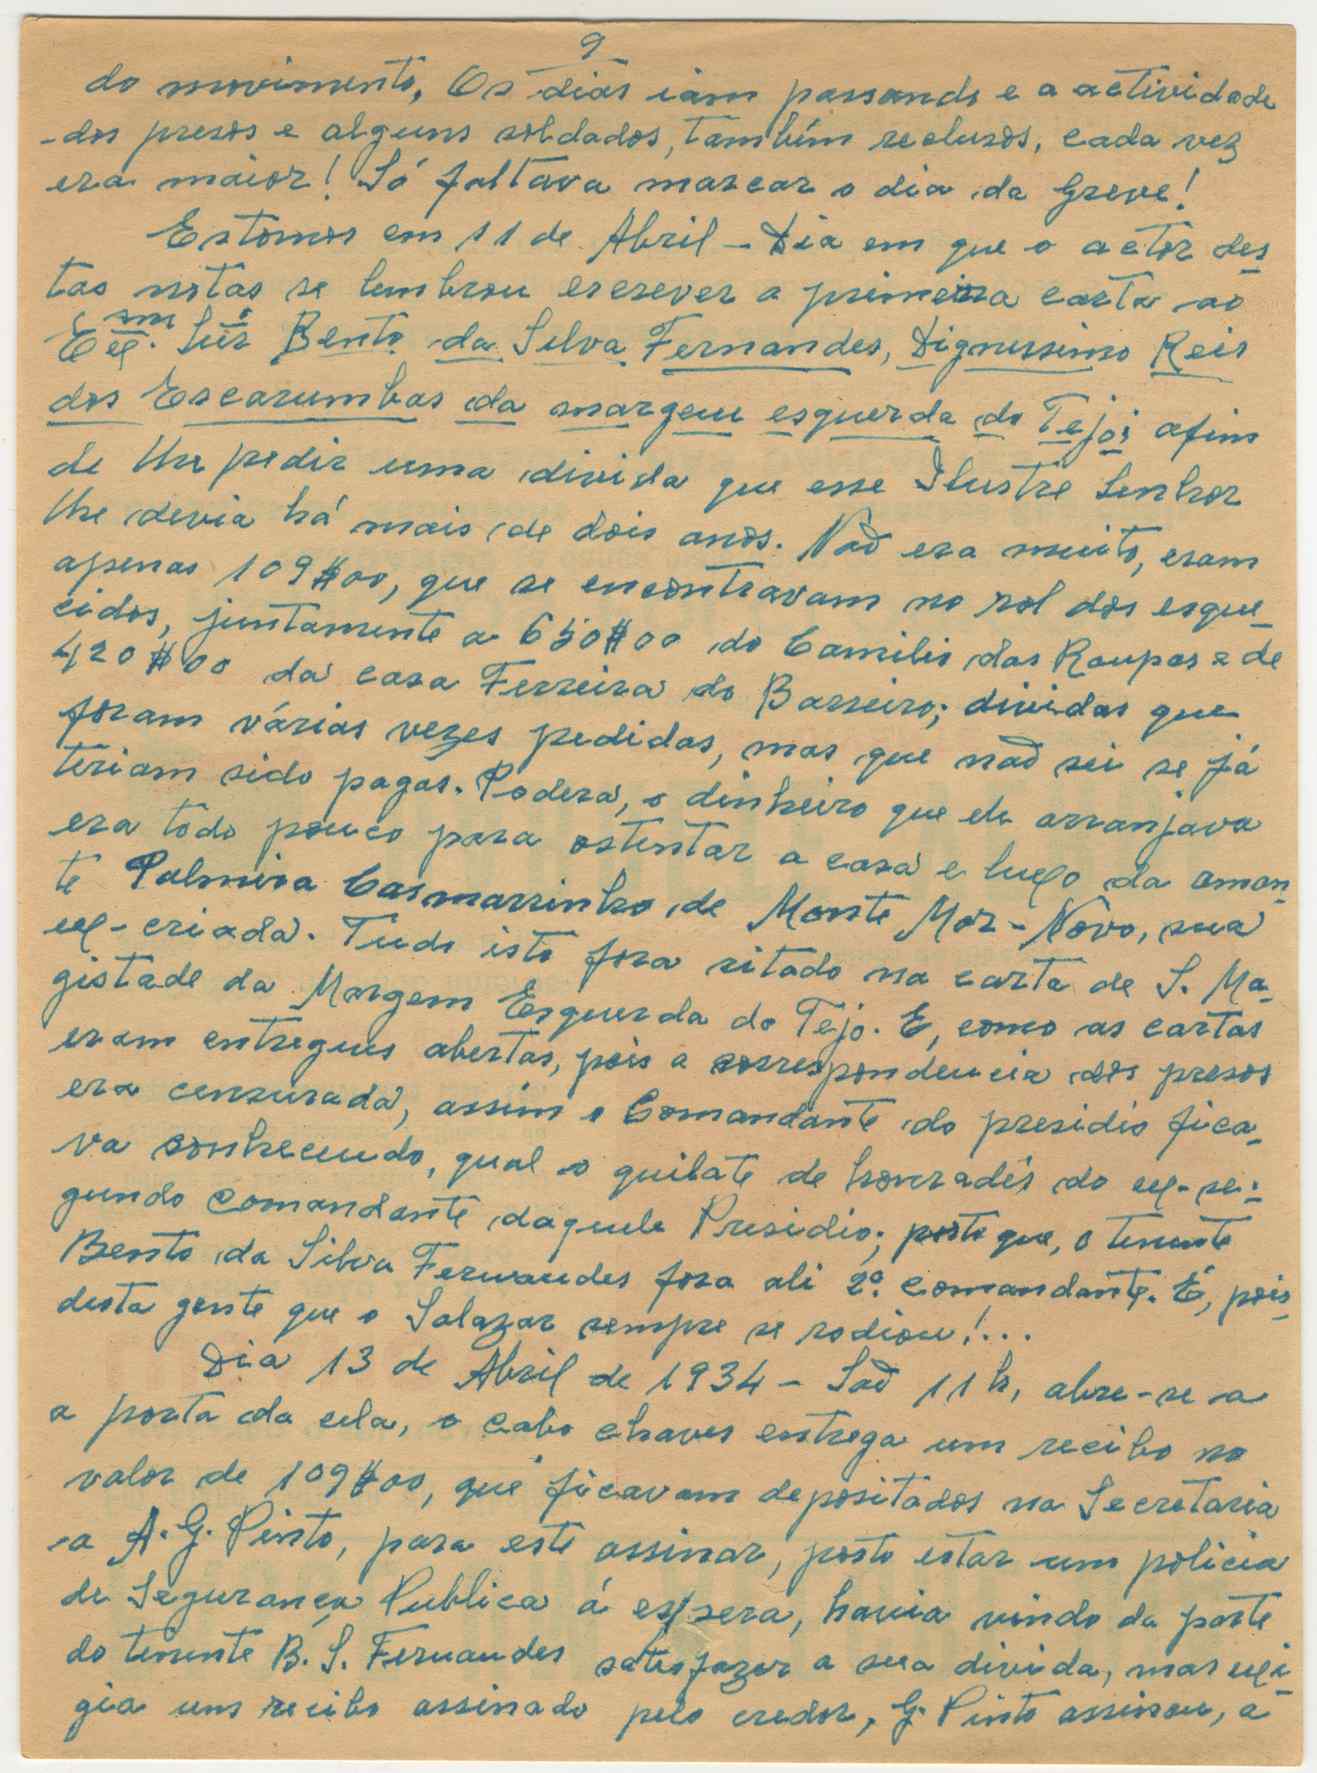 9
do movimento. Os dias iam passando e a actividade
-dos presos e alguns soldados, também reclusos, cada vez
era maior! Só faltava marcar o dia da Greve!
Estamos em 11 de Abril - Dia em que o actor des-
tas notas se lembrou escrever a primeira carta ao
Exmº. Snr. Bento da Silva Fernandes, Dignissimo Reis
dos Escarumbas da margem esquerda do Tejo; afim
de lhe pedir uma divida que esse Ilustre Senhor
lhe devia há mais de dois anos. Não era muito, eram
apenas 109$00, que se encontravam no rol dos esque-
cidos, juntamente a 650$00 do Camilio das Roupas e de
420$00 da casa Ferreira do Barreiro; dividas que
foram várias vezes pedidas, mas que não sei se já
teriam sido pagas. Podera, o dinheiro que ele arranjava
era todo pouco para ostentar a casa e luxo da aman-
te Palmira Casmarrinho de Monte Mor-Nôvo, sua
ex-criada. Tudo isto fora sitado na carta de S. Ma-
gistade da Margem Esquerda do Tejo. E, como as cartas
eram entregues abertas, pois a correspondencia dos presos
era censurada, assim o Comandante do presidio fica-
va conhecendo, qual o quilate de honradês do ex-se-
gundo comandante daquele Presidio; posto que, o tenente
Bento da Silva Fernandes fora ali 2º. comandante. É, pois,
desta gente que o Salazar sempre se rodiou!...
Dia 13 de Abril de 1934 - São 11 h, abre-se a
a porta da cela, o cabo chaves entrega um recibo no
valor de 109$00, que ficavam depositados na Secretaria
a A. G. Pinto, para este assinar, posto estar um policia
de Segurança Publica á espera, havia vindo da parte
do tenente B. S. Fernandes satisfazer a sua divida, mas exi-
gia um recibo assinado pelo credor, G. Pinto assinou, a